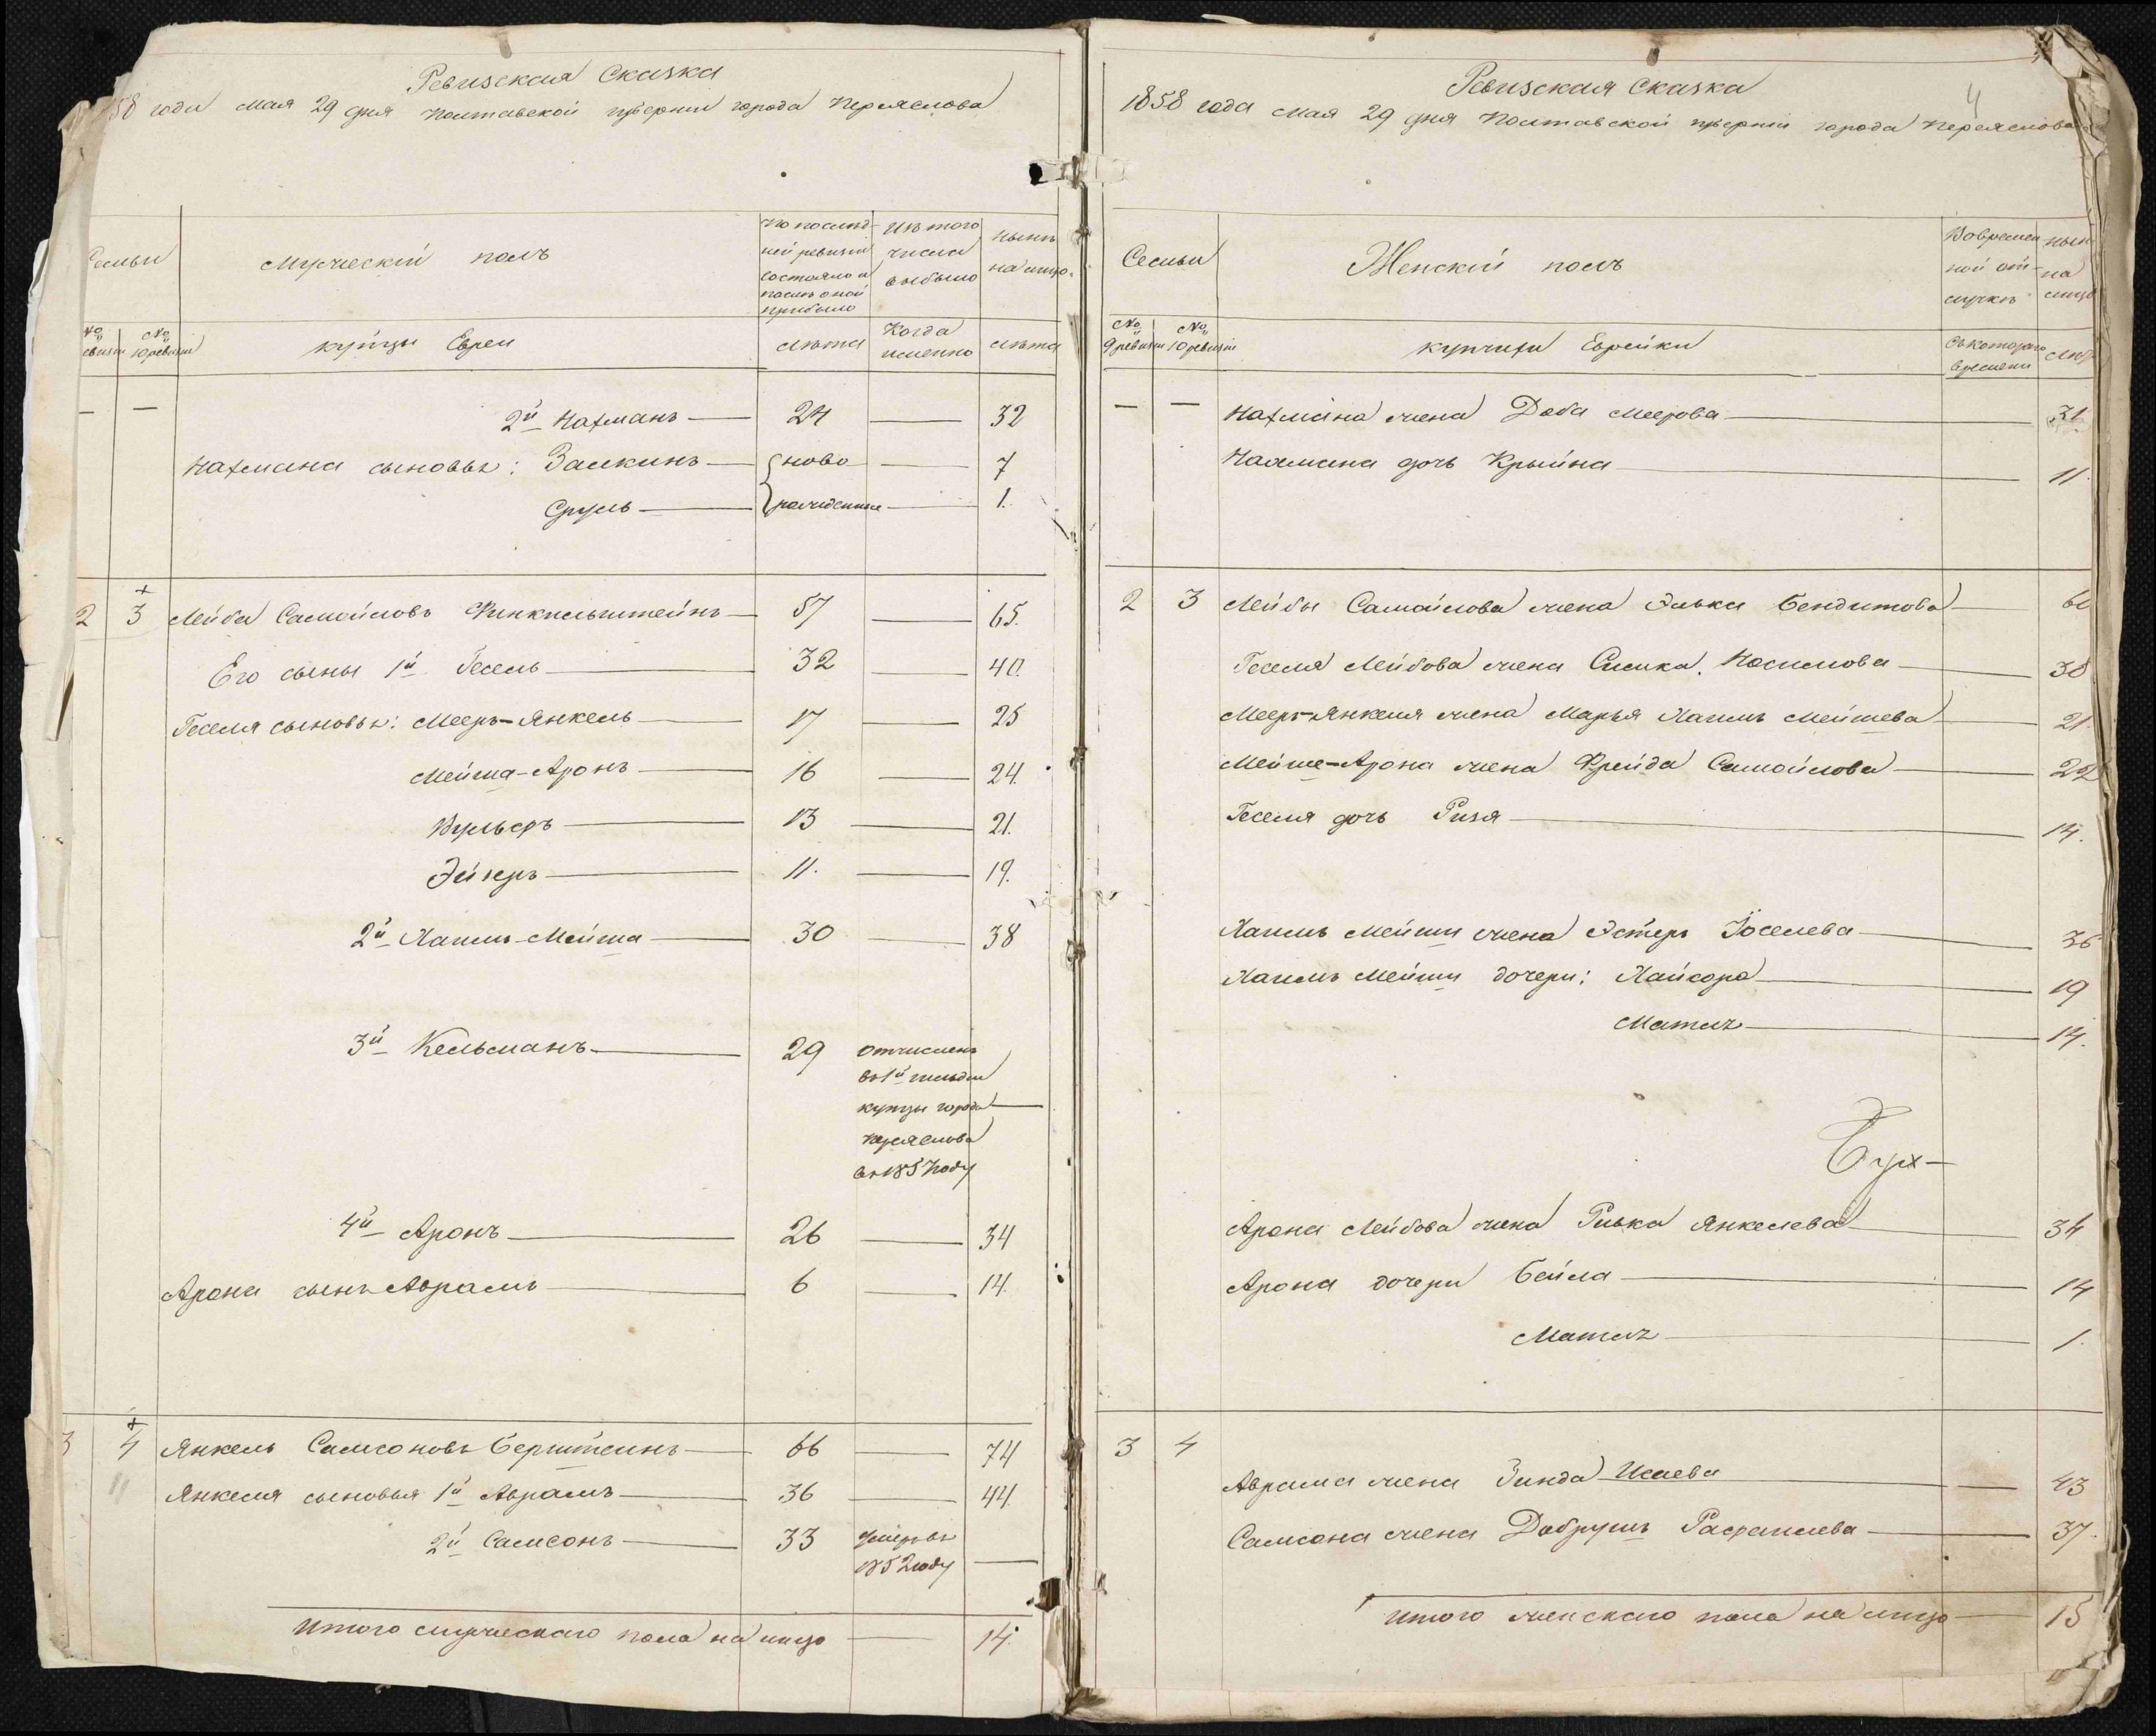 Ревизская Сказка
58 года Мая 29 дня Полтавской губернии города Переяслова
Семьи
Мужеский полъ
По послѣд-
ней ревизіи
состояло и
послѣ оной
прибыло
Изъ того
числа
выбыло
Нынѣ
на лицо
№
ревизіи
№
10 ревизіи
купцы Евреи
Лѣта
Когда
именно
Лѣта
— — 2й Нахманъ — 24 — 32
Нахмана сыновья: Залкинъ — ново — 7
Сруль — рожденные — 1.
2 3 Лейба Самойловъ Финкильштейнъ — 57 — 65.
Его сыны 1й Гесель — 32 — 40.
Геселя сыновья: Мееръ-Янкель — 17 — 25
Мейша-Аронъ — 16 — 24.
Вульфъ — 13 — 21.
Эйзеръ — 11. — 19.
2й Хаимъ-Мейша — 30 — 38
3й Кельманъ — 29 отчисленъ
въ 1й гильдіи
купцы города —
Переяслова
въ 1857 году
4й Аронъ — 26 — 34
Арона сынъ Аврамъ — 6 — 14.
3 4 Янкель Самсоновъ Берштеинъ — 66 — 74
Янкеля сыновья 1й Аврамъ — 36 — 44.
2й Самсонъ — 33 умеръ въ
1852 году —
Итого мужескаго пола на лицо — 14.
4
Ревизская Сказка
1858 года Мая 29 дня Полтавской губерніи города Переяслова
Семьи
Женскій полъ
Во времен-
ной от-
лучкѣ
Нын
на
лицо
№
9 ревизіи
№
10 ревизіи
купчихи Еврейки
Съ котораго
времени
Лѣт
— — Нахмана жена Доба Меерова — 31
Нахмана дочь Крыйна — 11.
2 3 Лейбы Самойлова жена Элька Бендитова — 60
Геселя Лейбова жена Симка Носимова — 38
Мееръ-Янкеля жена Марья Хаимъ Мейшева — 21.
Мейше-Арона жена Фрейда Самойлова — 22
Геселя дочь Ризя — 14.
Хаимъ Мейши жена Эстеръ Іоселева — 36
Хаимъ Мейши дочери: Хайкора — 19
Матлъ — 14.
Арона Лейбова жена Ривка Янкелева — 34
Арона дочери Бейла — 14
Матлъ — 1.
3 4
Аврама жена Зинда Исаева — 43
Самсона жена Добрушъ Рафаилева — 37.
Итого женскаго пола на лицо — 15